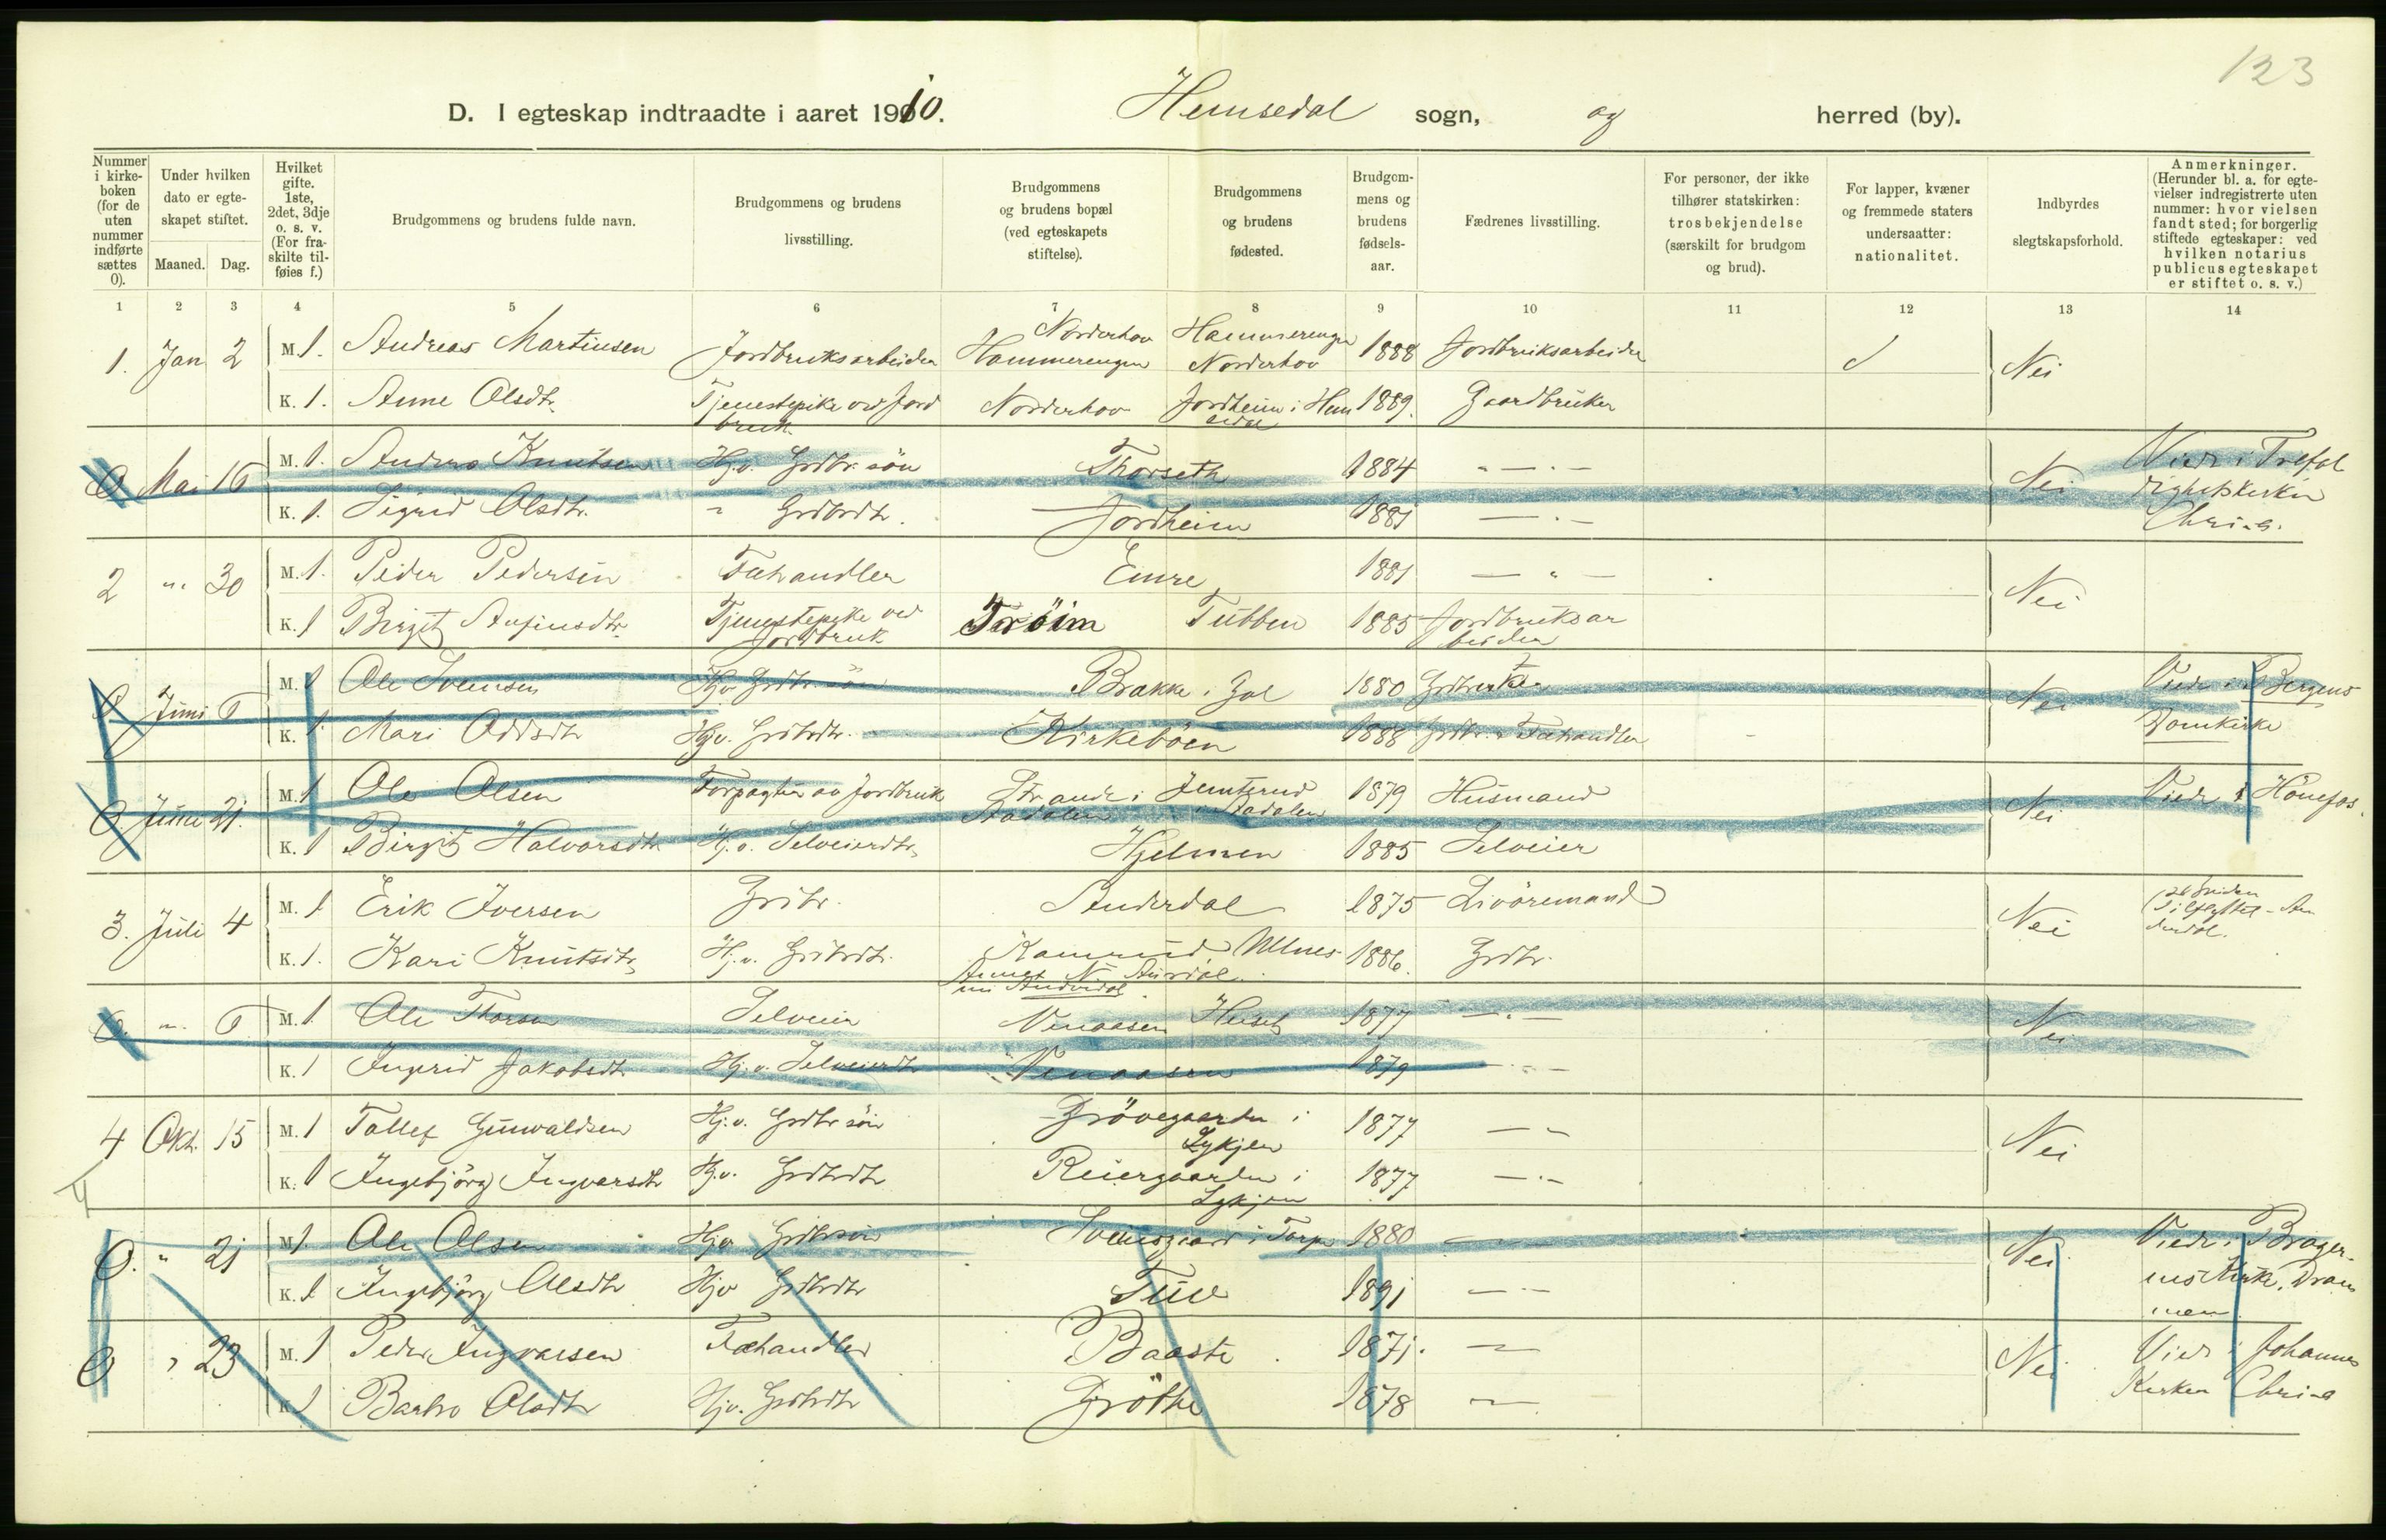 123
D. I egteskap indtraadte i aaret 1910. Hemsedal sogn, og herred (by).
Nummer i kirke-boken (for de uten nummer indførte sættes 0).
Under hvilken dato er egte-skapet stiftet.
Maaned. Dag.
Hvilket gifte. 1ste, 2det, 3dje o. s. v. (For fra-skilte til-føies f.)
Brudgommens og brudens fulde navn.
Brudgommens og brudens livsstilling.
Brudgommens og brudens bopæl (ved egteskapets stiftelse).
Brudgommens og brudens fødested.
Brudgom-mens og brudens fødsels-aar.
Fædrenes livsstilling.
For personer, der ikke tilhører statskirken: trosbekjendelse (særskilt for brudgom og brud).
For lapper, kvæner og fremmede staters undersaatter: nationalitet.
Indbyrdes slegtskapsforhold.
Anmerkninger. (Herunder bl. a. for egte-vielser indregistrerte uten nummer: hvor vielsen fandt sted; for borgerlig stiftede egteskaper: ved hvilken notarius publicus egteskapet er stiftet o. s. v.)
1 2 3 4 5 6 7 8 9 10 11 12 13 14
1. Jan 2 M. 1. Andreas Martinsen Jordbruksarbeider Norderhov Hammerengen Hammerengen Norderhov 1888 Jordbruksarbeider Nei
K. 1. Anne Olsdtr. Tjenestepike ved Jordbruk Norderhov Jordheim i Hemsedal 1889. Gaardbruker
0 Mai 16 M. 1. Andres Knutsen Hj. v. Grdbr. søn Thorseth 1884 " Nei Viede i Trefoldighetskirken Chria.
K. 1. Sigrid Olsdtr. " Grdbrdtr. Jordheim 1881 "
2 " 30 M. 1. Peder Pedersen Fæhandler Emre 1881 " Nei
K. 1 Birgit Anfinsdtr. Tjenestepike ved Jordbruk Trøim Tubben 1885 Jordbruksarbeider
0 Juni 6 M. 1 Ole Svensen Hjv Grdbr. søn Brakke i Gol 1880 Nei Viede i Bergens Domkirke
K. 1. Mari Oddsdtr Hjv. Grdbrdtr. Kirkebøen 1888 Grdbr. & Fæhandler
0 Juni 21. M. 1 Ole Olsen Forpagter av Jordbruk Strande i Aadalen Jemterud i Aadalen 1879 Husmand Nei Viede i Hønefos.
K. 1 Birgit Halvorsdtr Hj. v. Selveierdtr. Hjelmen 1885 Selveier
3. Juli 4 M. 1 Erik Iversen Grdbr. Anderdal 1875 Nei
K. 1. Kari Knutsdtr. Hj. v. Grdbrdtr. Ulnes 1886. Grdbr.
0. " 6 M. 1. Ole Thorsen Selveier Venaasen 1877 " Nei
K. 1 Ingrid Jakobsdtr. Hj. v. Selveierdtr Venaasen 1879 "
4 Okt. 15 M. 1 Tollef Gunvaldsen Hj. v. Grdbr søn Grøvegaarden i Lykjen 1877 " Nei
K. 1 Ingebjørg Ingvarsdtr Hj. v. Grdbrdtr Reiergaarden i Lykjen 1877 "
0. " 21 M. 1 Ole Olsen Hjv Grdbrsøn Sveinsgaard i Torpe 1880 Nei Viede i Bragernes Kirke. Drammen.
K. 1 Ingebjørg Olsdtr Hjv Grdbrdtr Tuv 1891 "
0 " 23 M. 1 Peder Ingvarsen Fæhandler Baaste 1871. " Nei Viede i Johannes Kirken Chria
K. 1 Barbro Olsdtr Hjv. Grdbrdtr Grøthe 1878 "